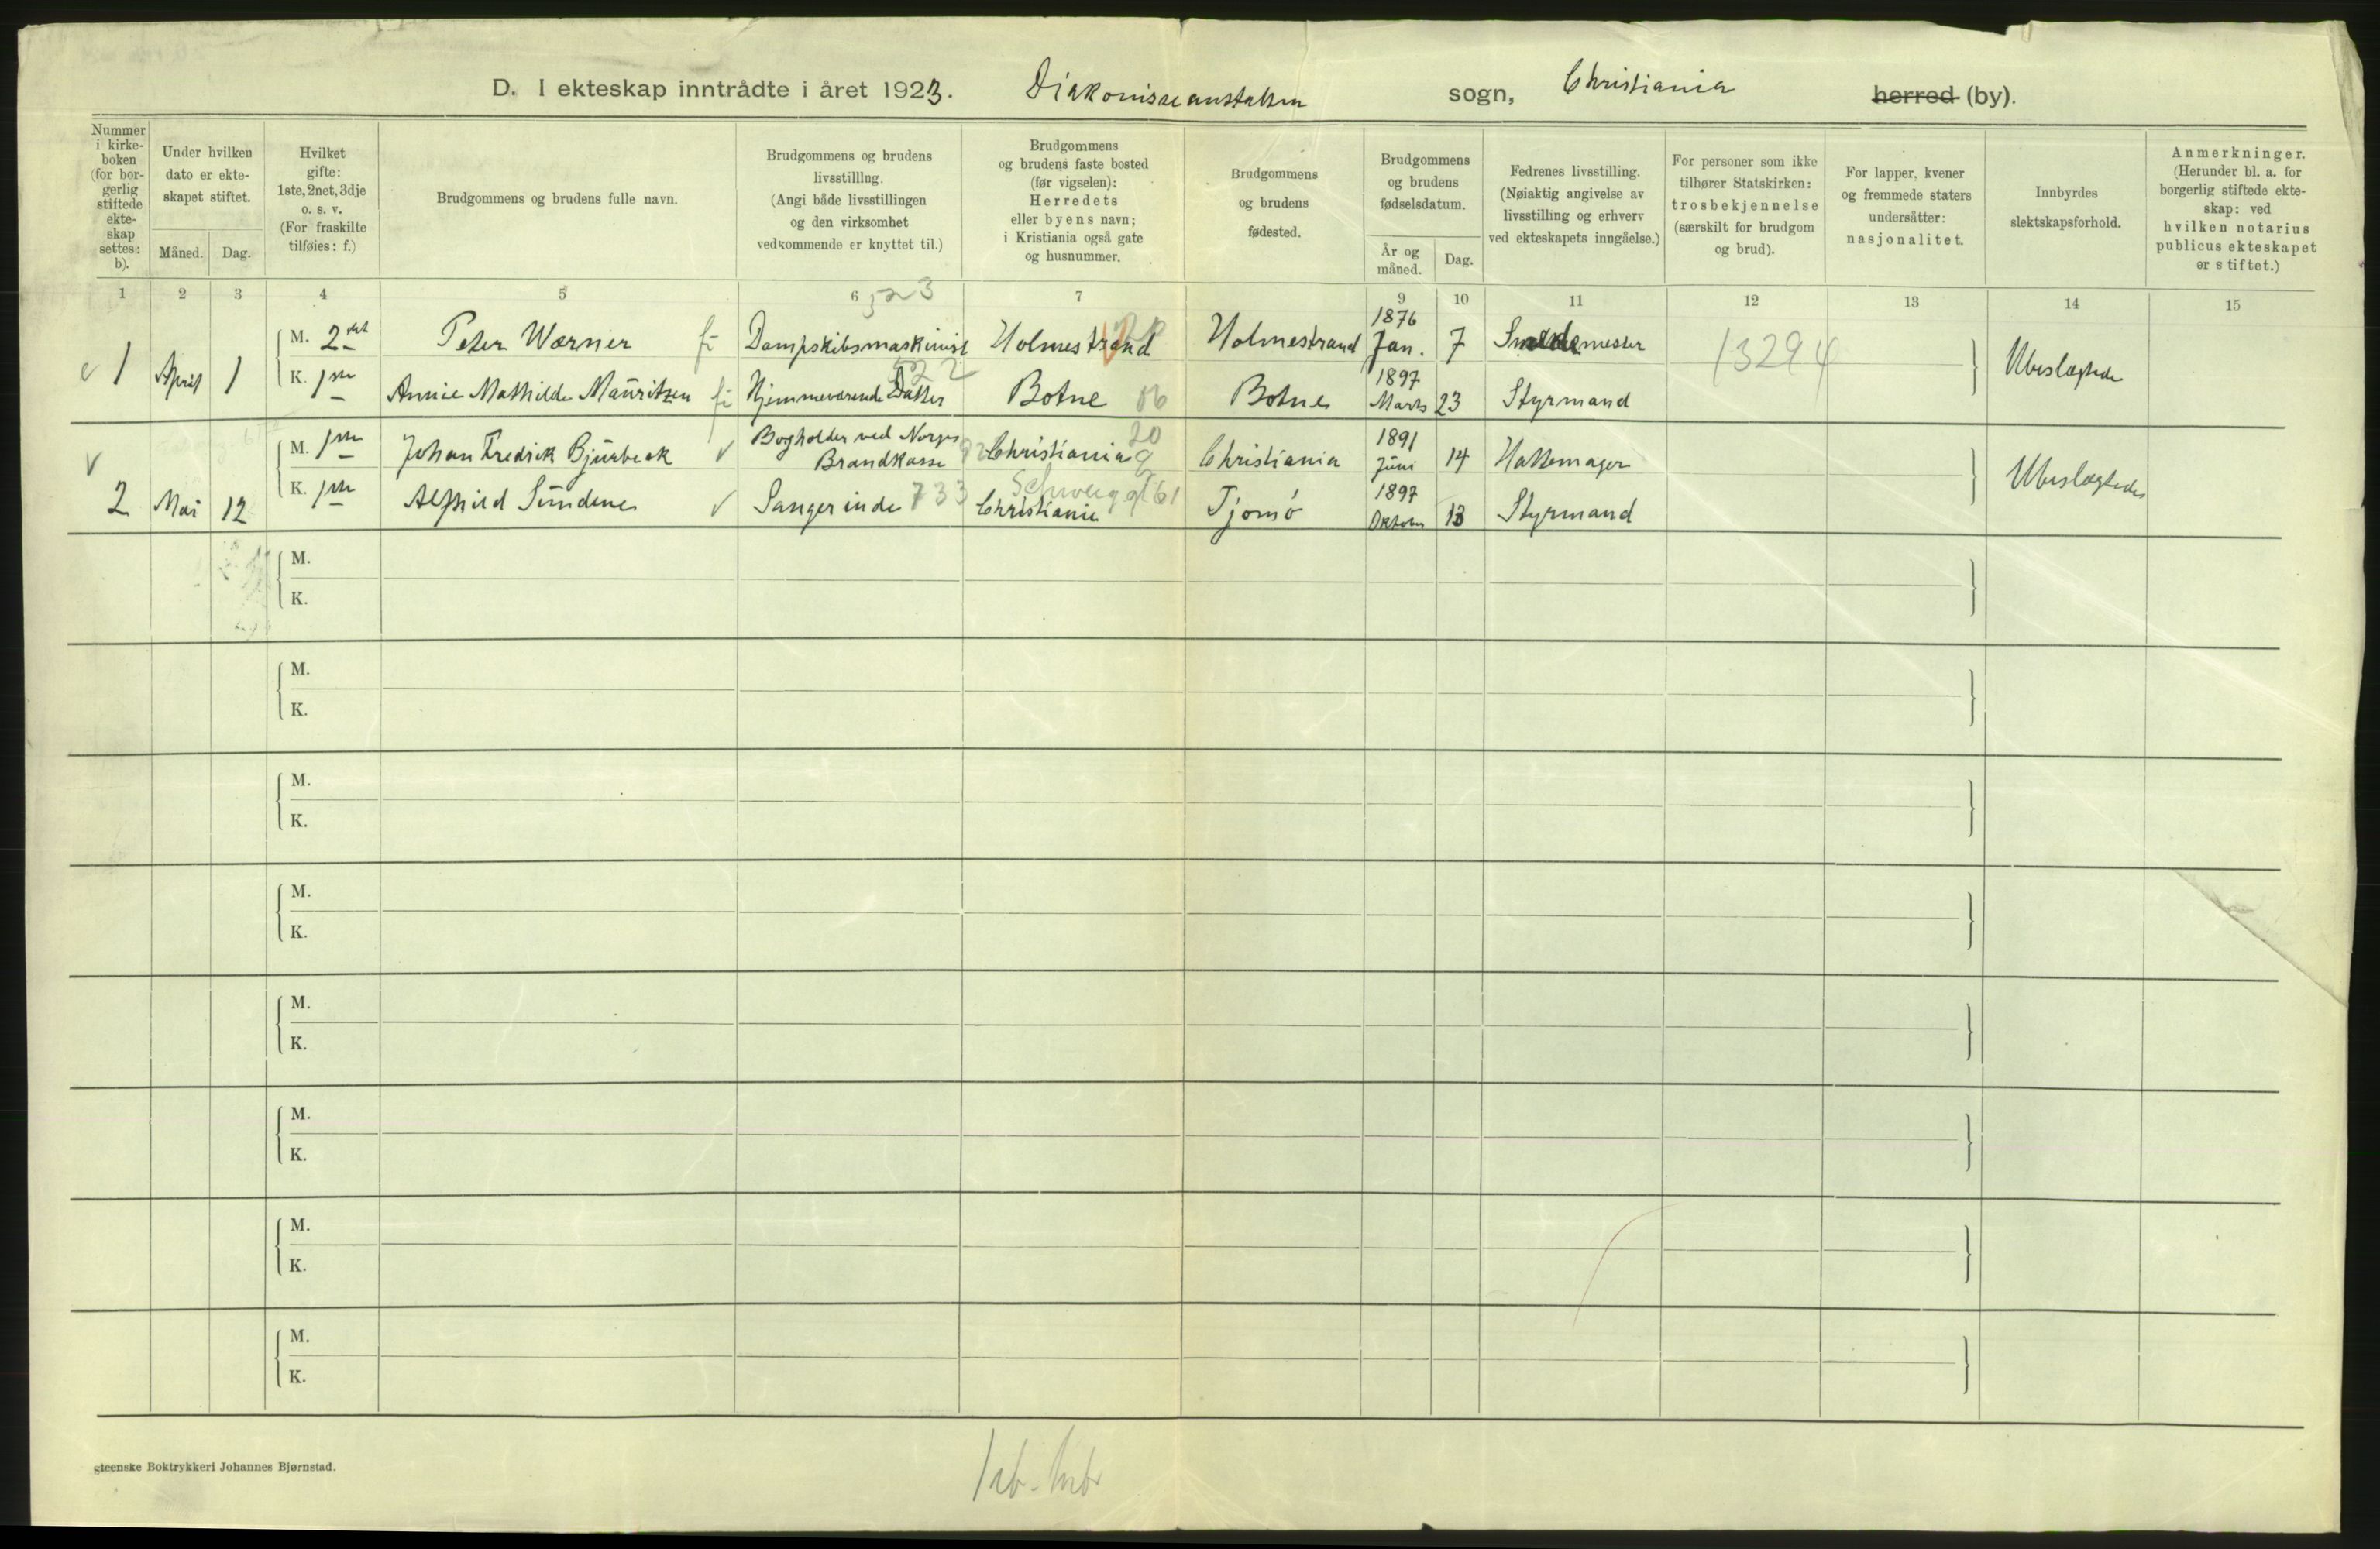 D. I ekteskap inntrådte i året 1923. Diakonisseanstalten sogn, Christiania herred (by).
Nummer i kirke-boken (for bor-gerlig stiftede ekte-skap settes: b).
Under hvilken dato er ekte-skapet stiftet.
Måned. Dag.
Hvilket gifte: 1ste, 2net, 3dje o. s. v. (For fraskilte tilføies: f.)
Brudgommens og brudens fulle navn.
Brudgommens og brudens livsstilling. (Angi både livsstillingen og den virksomhet vedkommende er knyttet til.)
Brudgommens og brudens faste bosted (før vigselen): Herredets eller byens navn; i Kristiania også gate og husnummer.
Brudgommens og brudens fødested.
Brudgommens og brudens fødselsdatum.
År og måned. Dag.
Fedrenes livsstilling. (Nøiaktig angivelse av livsstilling og erhverv ved ekteskapets inngåelse.)
For personer som ikke tilhører Statskirken: trosbekjennelse (særskilt for brudgom og brud).
For lapper, kvener og fremmede staters undersåtter: nasjonalitet.
Innbyrdes slektskapsforhold.
Anmerkninger. (Herunder bl. a. for borgerlig stiftede ekte-skap: ved hvilken notarius publicus ekteskapet er stiftet.)
1 2 3 4 5 6 7 9 10 11 12 13 14 15
523
1 April 1 M. 2det Peter Wærner Dampskibsmaskinist Holmestrand Holmestrand 1876 Jan. 7 Smedemester 13294 Ubeslægtede
522
K. 1ste Annie Mathilde Mauritzen Hjemmeværende Datter Botne Botne 1897 Marts 23 Styrmand
M. 1ste Johan Fredrik Bjürbeck Bogholder ved Norges Brandkasse Christiania 20 Christiania 1891 Juni 14 Hattemager Ubeslægtede
2 Mai 12 K. 1ste Alfhild Sundene Sangerinde 733 Schweigg gt 61 Christiania Tjømø 1897 Oktober 13 Styrmand
M.
K.
M.
K.
M.
K.
M.
K.
M.
K.
M.
K.
M.
K.
M.
K.
steenske Boktrykkeri Johannes Bjørnstad.